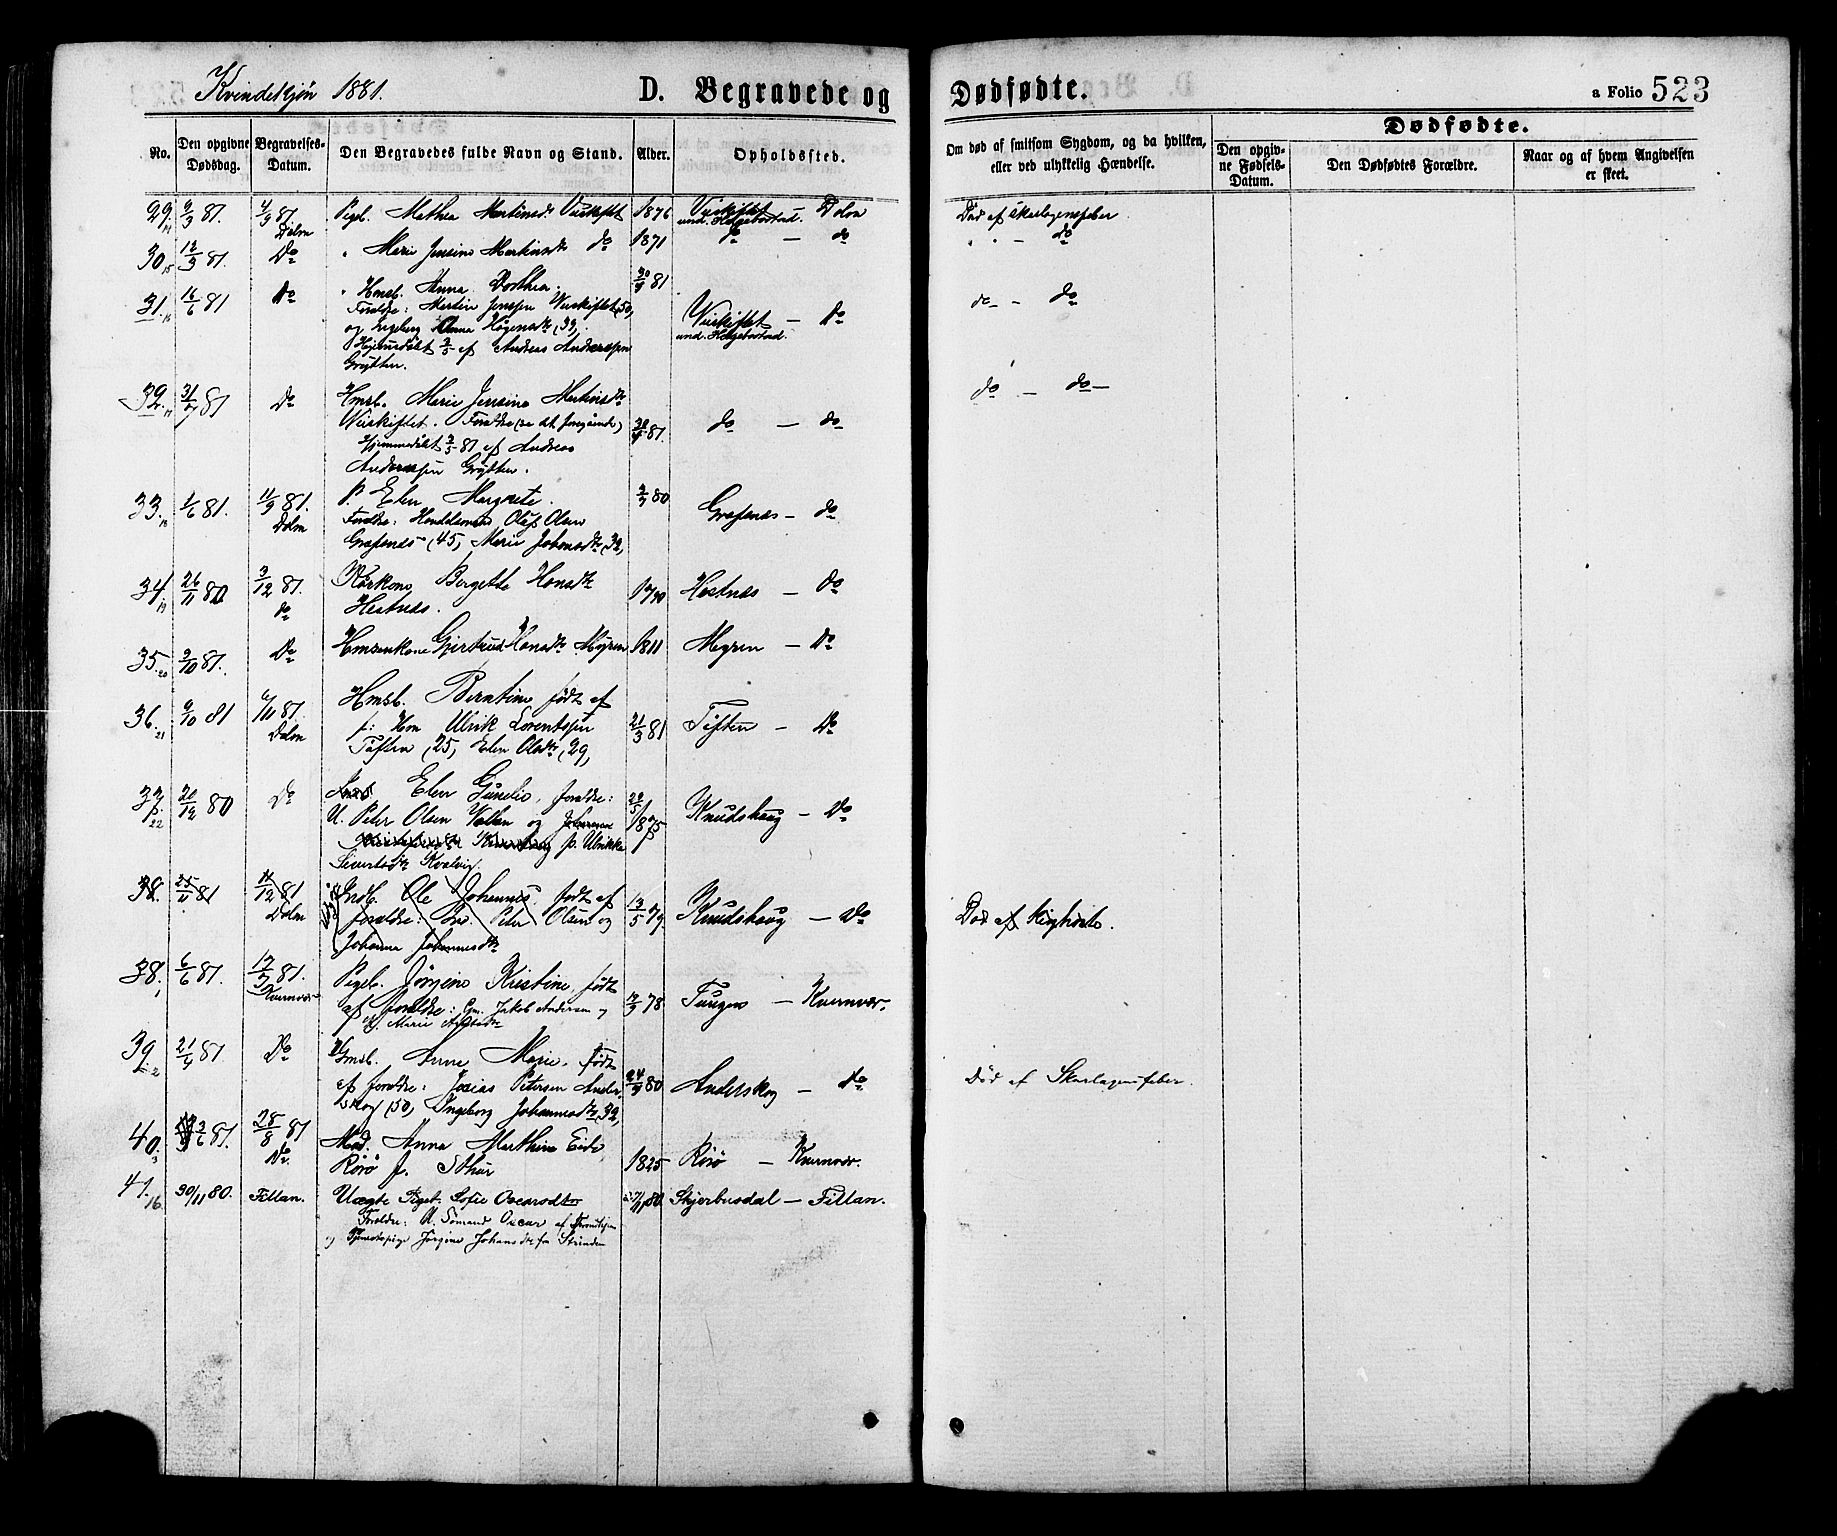 Kvindekjøn 1881.
D. Begravede og Dødfødte.
a Folio 523
No.
Den opgivne Dødsdag.
Begravelses-Datum.
Den Begravedes fulde Navn og Stand.
Alder.
Opholdssted.
Om død af smitsom Sygdom, og da hvilken, eller ved ulykkelig Hændelse.
Dødfødte.
Den opgivne Fødsels-Datum.
Den Dødfødtes Forældre.
Naar og af hvem Angivelsen er skeet.
29. 9/3 81. 4/9 81. Dolm Pigeb. Mathea Martinsdr Viskiftet 1876 Viskiftet Dolm
und. Helgebostad.
Død af skarlagensfeber
30 12/3 81. Do " Marie Jensine Martinsdr do 1871 do — do
" " — do
31. 16/6 81 Do " Hmsb. Anna Dorthea. 30/4 81
Forældre: Martin Jenssen Viskiftet (50,
og Ingeberg Anna Hågensdr (39,
Hjemmedøbt 3/5 af Andreas Anderssen
Grytten.
Viskiftet — Do
und. Helgebostad.
do — do
32. 31/5 81 Do Hmsb. Marie Jensine Martinsdr
Viskiftet. Forældre (se det foregående)
Hjemmedøbt 3/5 81 af Andreas
Anderssen Grytten.
30/4 81. do — do
do — do —
33. 1/6 81. 11/9 81. Dolm P. Elen Margrete. 2/9 80
Forældre: Handelsmand Oluf Olsen
Grefsnes (45, Marie Johansdr (32,
Grefsnes — do
34. 26/11 80 3/12 81. do Kårkone Bergette Hansdr
Hestnes.
1790 Hestnes — Do
35. 3/10 81. Do Hmsenkone Gjertrud Hansdr Myren 1811 Myren — Do
36. 9/10 81 6/11 81. Dolm Hmsb. Berntine født af
f: Hm Ulrik Lorentssen
Tiften (25, Elen Olsdr (29,
21/3 81 Tiften — Do
37. 20/12 80 Do Elen Gunelie, forældre:
U. Peter Olsen Vollan og
p. Ulrikke
Sivertsdr Kvalvig.
20/5 1875 Knudshaug — Do
38. 25/11 81 11/12 81 Dolm Indb. Ole Johannes, født af
forældre: Peter Olsen og
Johanna Johannesdr
13/5 79. Knudshaug — Do
Død af Kighoste.
38. 6/6 81. 17/7 81. Kvernvær Pigeb. Jørgine Kristine, født
af forældre: Gm. Jakob Andersen og
H. Marie
78 Tungen — Kvernvær.
39. 21/4 81. Do Gmsb. Anne Marie, født
af forældre: Josias Petersen Anders
kog (50, Ingeborg Johannesdr (39,
24/9 80 Anderskog — Do
Død af Skarlagensfeber.
40. 3/6 81. 28/8 81 Do. Mad. Anna Marthine Eide,
Rørø f. Sthur
1825 Rørø — Kvernvær.
41. 30/11 80. Fillan. Uægte Pigeb. Sofie Oscarsdtr 80 Skjerbusdal — Fillan.
Forældre: U. Sømand Oscar af
og Tjenestepige Jørgine Johansdtr fra Strinden